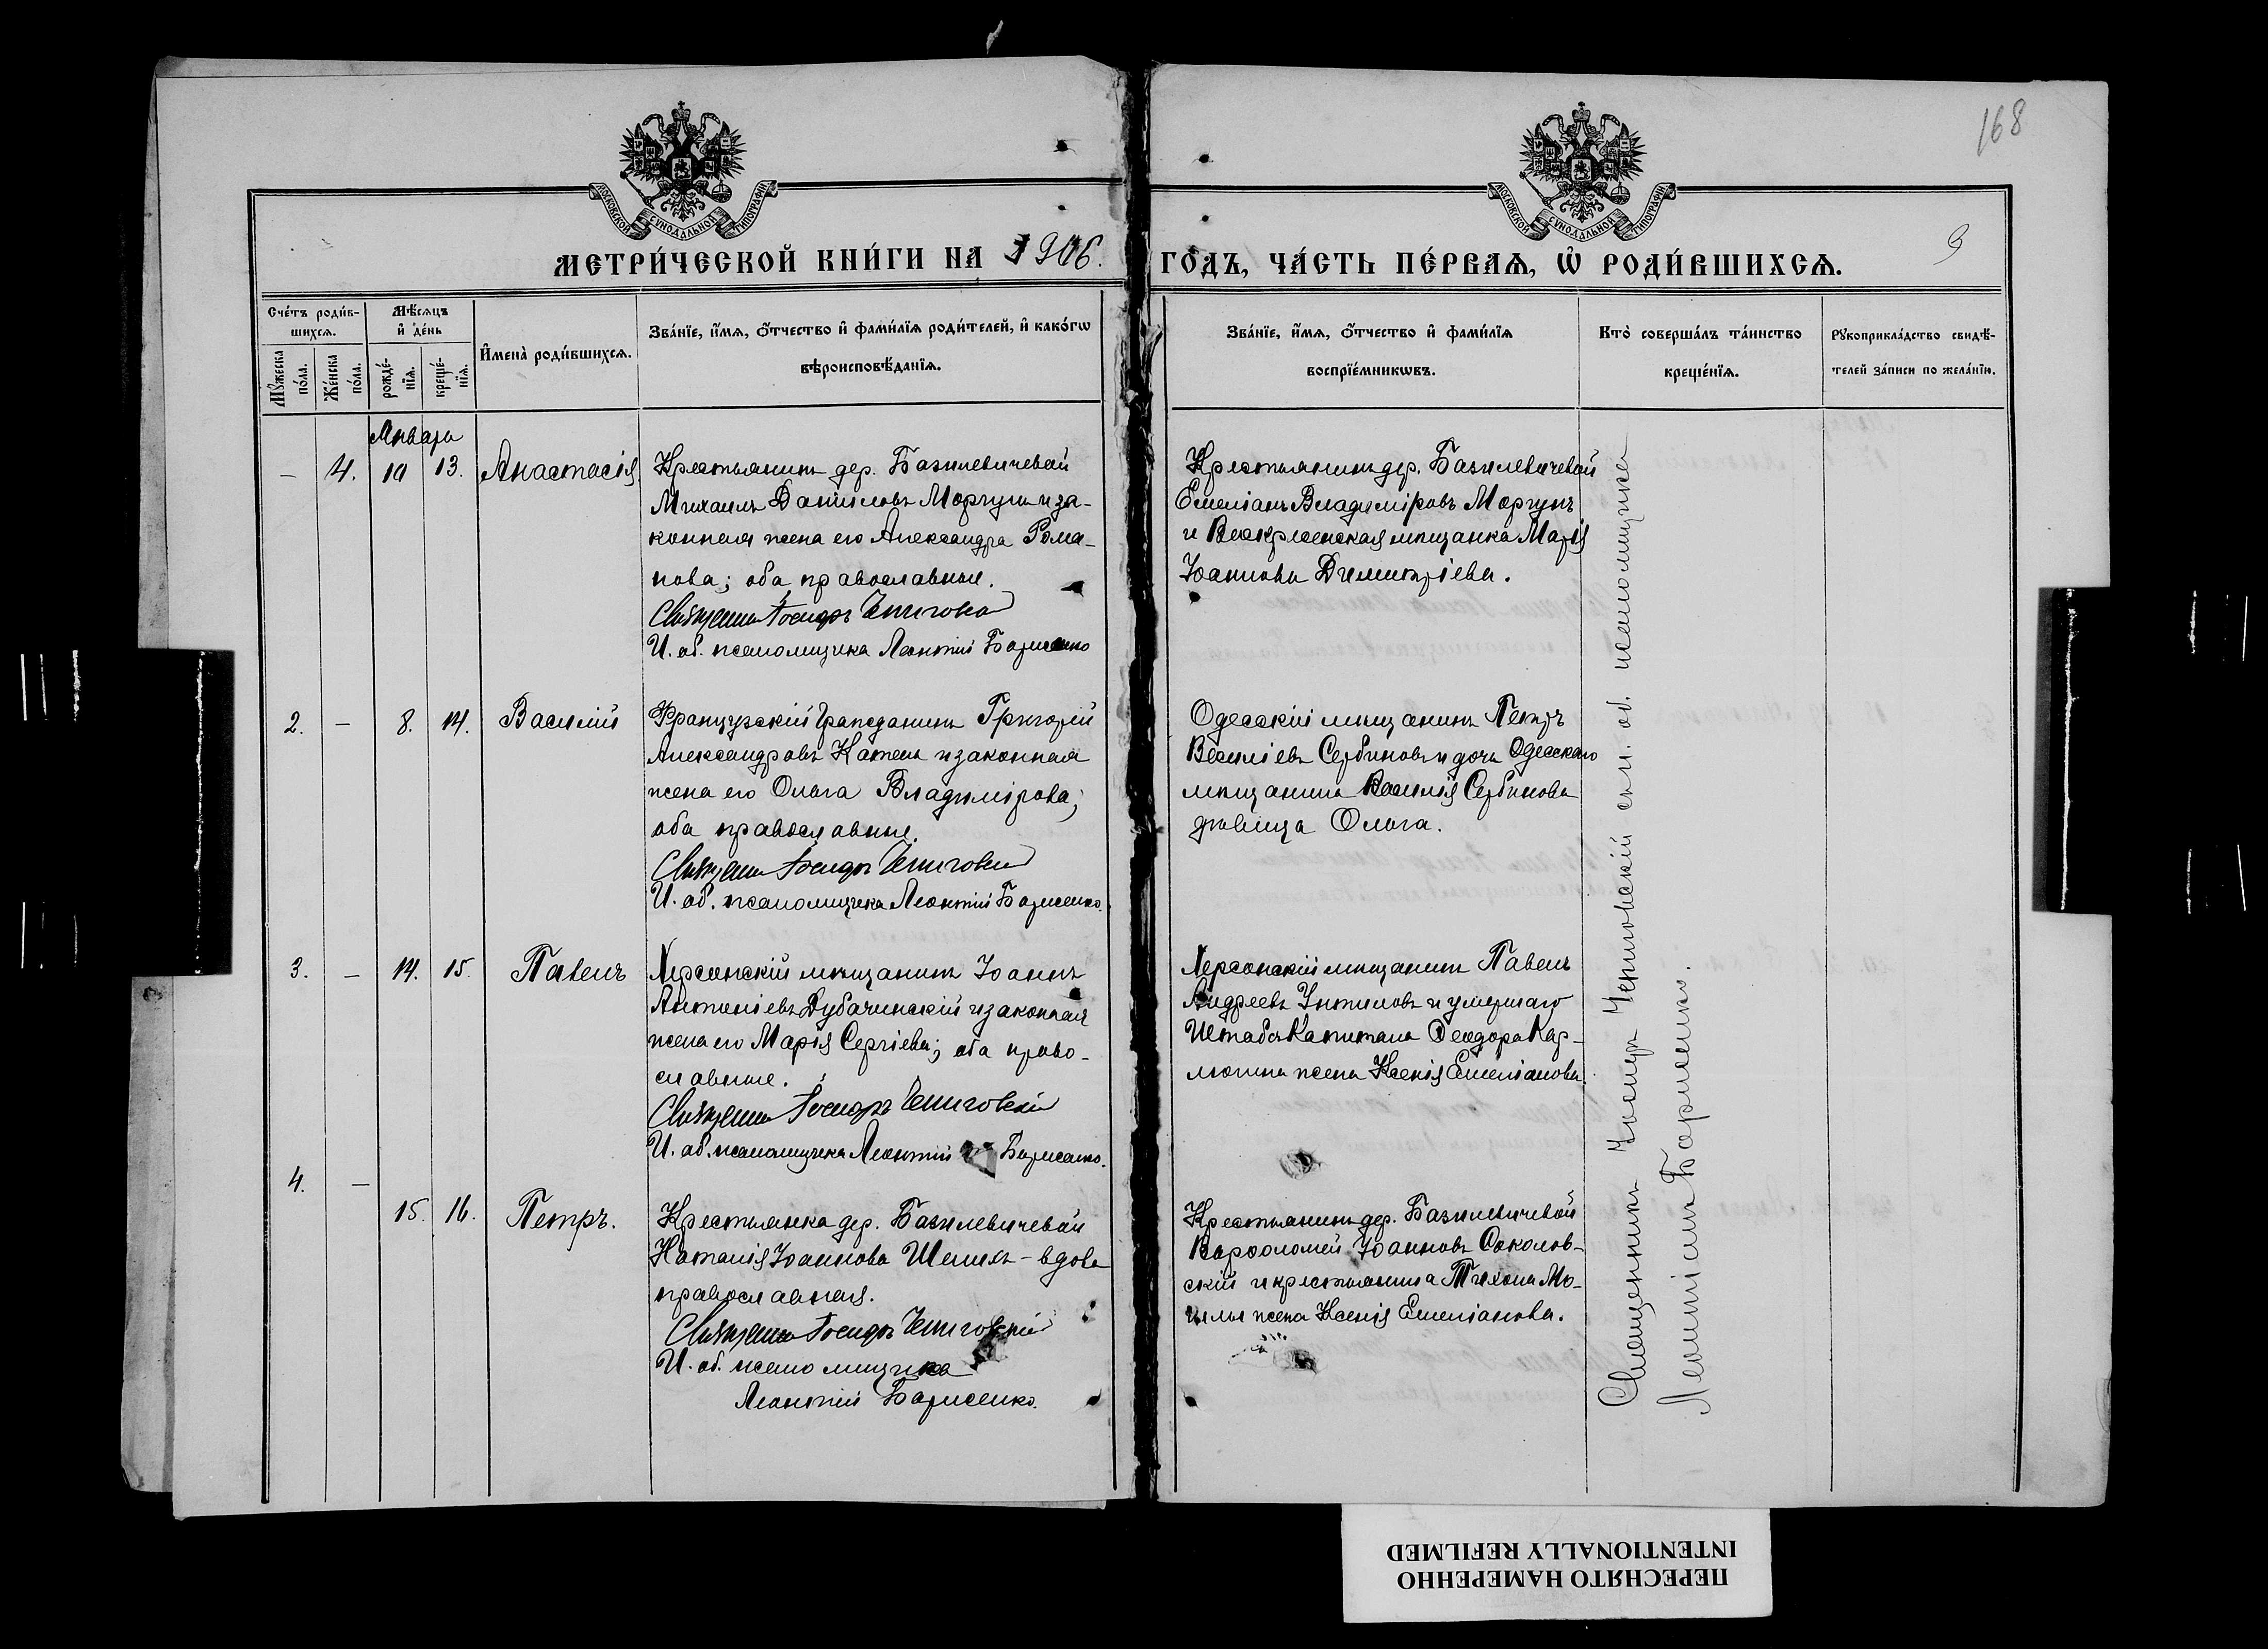 168
МОСКОВСКОЙ СѴНОДАЛЬНОЙ ТИПОГРАФІИ
МОСКОВСКОЙ СѴНОДАЛЬНОЙ ТИПОГРАФІИ
МЕТРИ́ЧЕСКОЙ КНИ́ГИ НА 1906.
ГО́ДЪ, ЧА́СТЬ ПЕ́РВАѦ, Ѡ РОДИ́ВШИХСѦ.
9
Сче́тъ роди́в-
шихсѧ.
Мꙋ́жеска
по́ла.
Же́нска
по́ла.
Мѣ́сѧцъ
и҆ де́нь
рожде́-
нїѧ.
креще́-
нїѧ.
И҆мена̀ роди́вшихсѧ.
Зва́нїе, и҆́мѧ, ѻ҆́тчество и҆ фами́лїѧ роди́телей, и҆ како́гѡ
вѣроисповѣ́данїѧ.
Зва́нїе, и҆́мѧ, ѻ҆́тчество и҆ фами́лїѧ
воспрїе́мникѡвъ.
Кто̀ соверша́лъ та́инство
креще́нїѧ.
Рꙋкоприкла́дство свидѣ́-
телей за́писи по жела́нїю.
Январь
— 4. 10 13. Анастасія
Крестьянинъ дер. Базилевичевой
Михаилъ Даніиловъ Моргунъ и за-
конная жена его Александра Рома-
нова; оба православные.
Священник Іосифъ Чернговскій
И. об. псаломщика Леонтій Борисенко
Крестьянинъ дер. Базилевичевой
Емеліанъ Владиміровъ Моргунъ
и Воскресенская мѣщанка Марія
Іоаннова Димитріева.
2. — 8. 14. Василій
Французскій Гражданинъ Григорій
Александровъ Катель и законная
жена его Ольга Владимірова;
оба православные.
Священник Іосифъ Чернговскій
И. об. псаломщика Леонтій Борисенко.
Одесскій мѣщанинъ Петръ
Василіевъ Сербиновъ и дочь Одесскаго
мѣщанина Василія Сербинова
дѣвица Ольга.
3. — 14. 15. Павелъ
Херсонскій мѣщанинъ Іоаннъ
Антоніевъ Дубачинскій и законная
жена его Марія Сергіева; оба право-
славные.
Священник Іосифъ Чернговскій
И. об. псаломщика Леонтій Борисенко.
Херсонскій мѣщанинъ Павелъ
Андреевъ и умершаго
Штабсъ Капитана Ѳеодора Кар-
жена Ксенія Емеліанова.
4. —
15. 16. Петръ.
Крестьянка дер. Базилевичевой
Наталія Іоаннова — вдова
православная.
Священник Іосифъ Чернговскій
И. об. псаломщика
Леонтій Борисенко.
Крестьянинъ дер. Базилевичевой
Варѳоломей Іоанновъ Соколов-
скій и крестьянина Тихона Мо-
гилы жена Ксенія Емеліанова.
Священникъ Іосифъ Черниговскій съ и. об. псаломщика
Леонтіемъ Борисенко.
ПЕРЕСНЯТО НАМЕРЕННО
INTENTIONALLY REFILMED